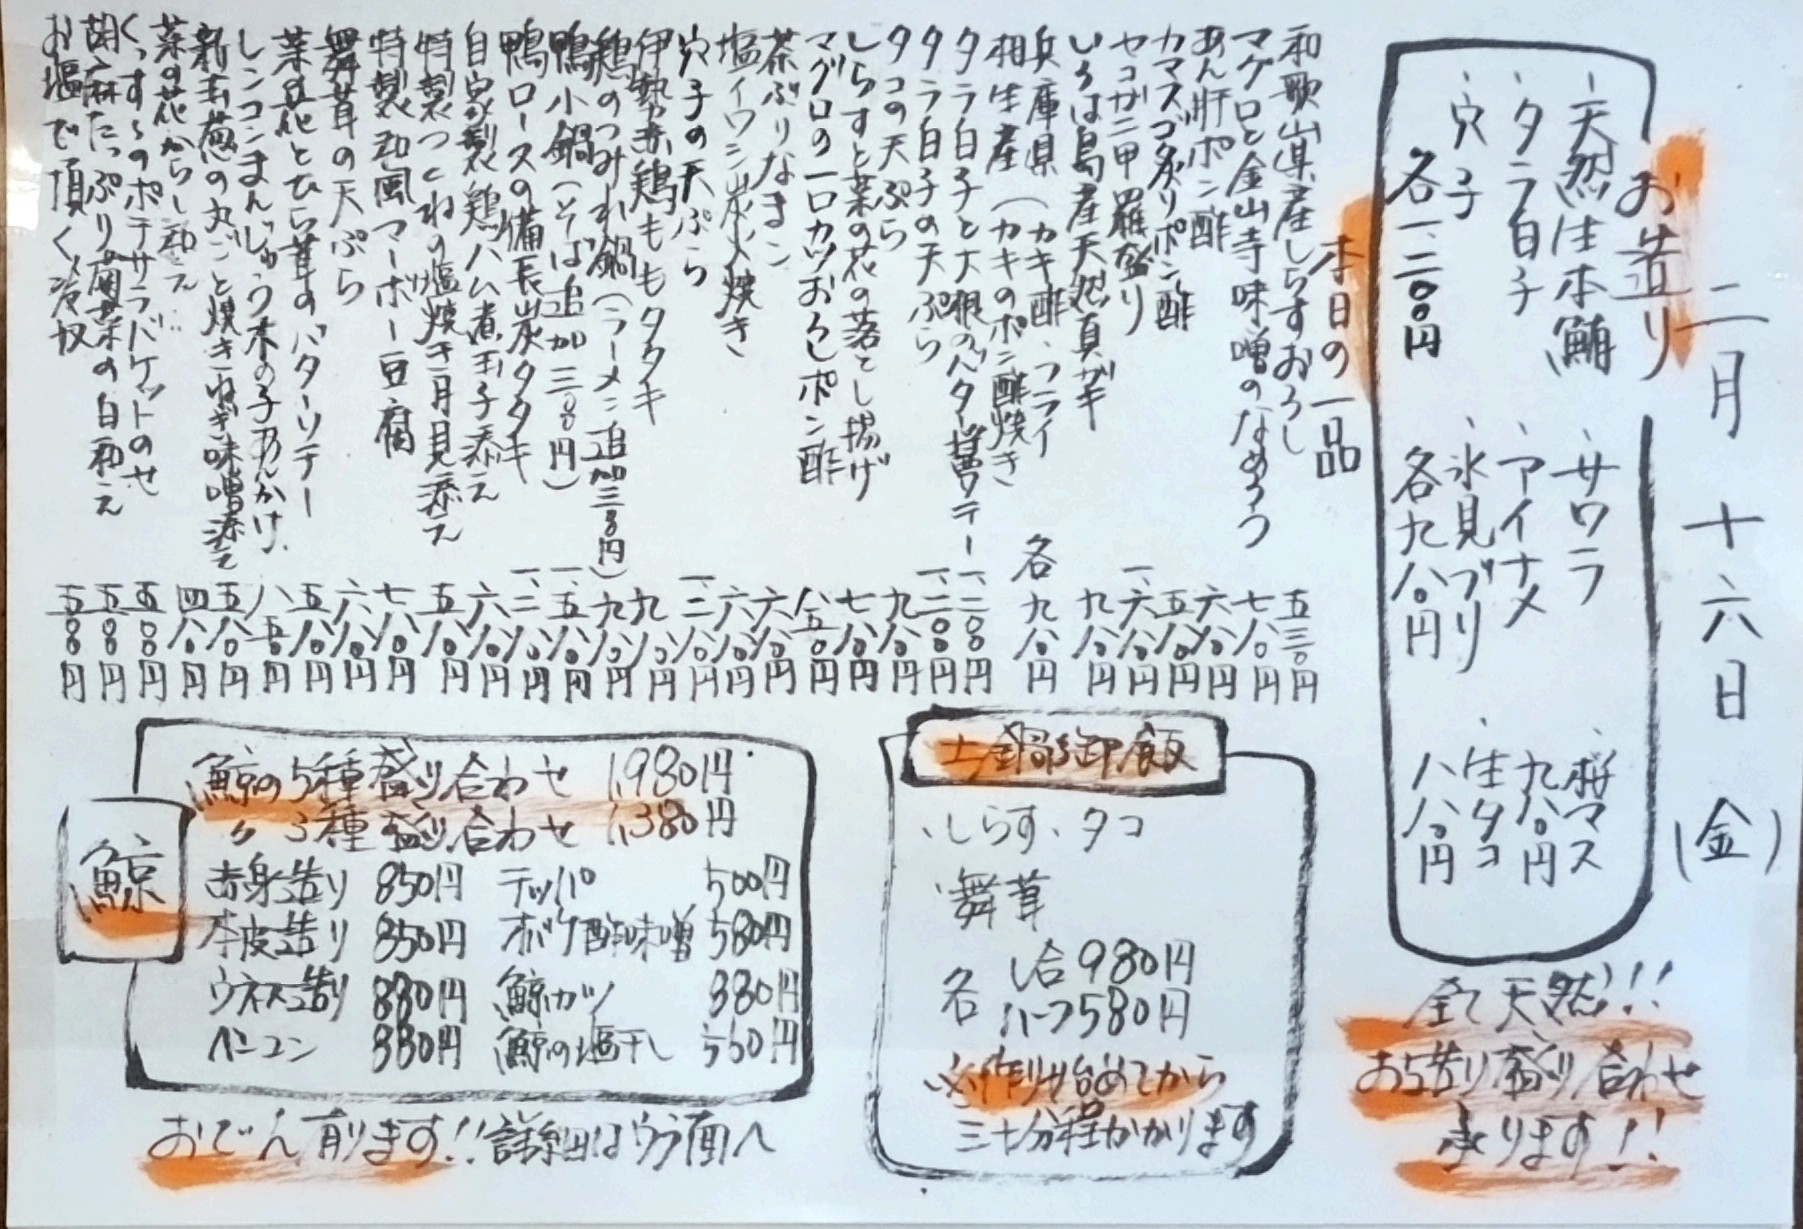 二月十六日(金)
お造り
、天然生本鮪
、タラ白子
、穴子
各一、二〇〇円
、サワラ
、アイナメ
、氷見ブリ
各九八〇円
、桜マス
九八〇円
、生タコ
八八〇円
全て天然!!
お造り盛り合わせ
承ります!!
本日の一品
和歌山県産しらすおろし 五三〇円
マグロと金山寺味噌のなめろう 七八〇円
あん肝ポン酢 六八〇円
カマス炙りポン酢 五八〇円
セコガニ甲羅盛り 一、六八〇円
いろは島産天然真ガキ 九八〇円
兵庫県(カキ酢、フライ
相生産(カキのポン酢焼き 各九八〇円
タラ白子と大根のバター醤ソテー 一、二〇〇円
タラ白子の天ぷら 一、二〇〇円
タコの天ぷら 九八〇円
しらすと菜の花の落とし揚げ 七八〇円
マグロの一口カツおろしポン酢 八五〇円
茶ぶりなまこ 六八〇円
塩イワシ炭火焼き 六八〇円
穴子の天ぷら 一、二八〇円
伊勢赤鶏ももタタキ 九八〇円
鶏のつみれ鍋(ラーメン追加三〇〇円) 九八〇円
鴨小鍋(そば追加三〇〇円) 一、五八〇円
鴨ロースの備長炭タタキ 一、二八〇円
自家製鶏ハム煮玉子添え 六八〇円
特製つくねの塩焼き月見添え 五八〇円
特製和風マーボー豆腐 七八〇円
舞茸の天ぷら 六八〇円
菜の花とひら茸のバターソテー 五八〇円
レンコンまんじゅう木の子あんかけ 八五〇円
新玉葱の丸ごと焼きねぎ味噌添え 五八〇円
菜の花からし和え 四八〇円
くっすぅのポテサラバケットのせ 五五〇円
胡麻たっぷり菊菜の白和え 五五〇円
お塩で頂く冷奴 五〇〇円
土鍋御飯
、しらす、タコ
、舞茸
各 一合980円
ハーフ580円
※作り始めてから
三十分程かかります
鯨
鯨の5種盛り合わせ 1,980円
〃 3種盛り合わせ 1,380円
赤身造り 850円 テッパ 500円
本皮造り 850円 オバケ酢味噌 580円
ウネス造り 880円 鯨カツ 880円
ベーコン 880円 鯨の塩干し 560円
おでん有ります!!詳細はウラ面へ